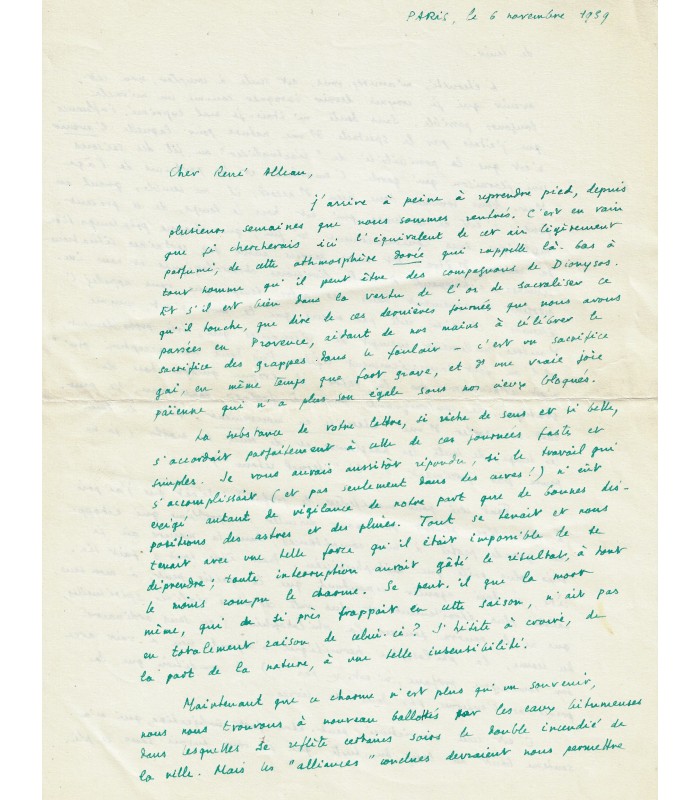 PARIS, le 6 novembre 1959
Cher René Alleau,
J'arrive à peine à reprendre pied, depuis
plusieurs semaines que nous sommes rentrés. C'est en vain
que je chercherais ici l'équivalent de cet air légèrement
parfumé, de cette athmosphère dorée qui rappelle là-bas à
tout homme qu'il peut être des compagnons de Dionysos.
Et s'il est bien dans la vertu de l'or de sacraliser ce
qu'il touche, que dire de ces dernières journées que nous avons
passées en Provence, aidant de nos mains à célébrer le
sacrifice des grappes dans le fouloir – c'est un sacrifice
gai, en même temps que fort grave, et d'une vraie joie
païenne qui n'a plus son égale sous nos cieux bloqués.
La substance de votre lettre, si riche de sens et si belle,
s'accordait parfaitement à celle de ces journées fastes et
simples. Je vous aurais aussitôt répondu, si le travail qui
s'accomplissait (et pas seulement dans des cuves !) n'eût
exigé autant de vigilance de notre part que de bonnes dis-
positions des astres et des pluies. Tout se tenait et nous
tenait avec une telle force qu'il était impossible de se
déprendre ; toute interruption aurait gâté le résultat, à tout
le moins rompu le charme. Se peut-il que la mort
même, qui de si près frappait en cette saison, n'ait pas
eu totalement raison de celui-ci ? J'hésite à croire, de
la part de la nature, à une telle insensibilité.
Maintenant que ce charme n'est plus qu'un souvenir,
nous nous trouvons à nouveau ballottés par les eaux bitumeuses
dans lesquelles se reflète certains soirs le double incendié de
la ville. Mais les "alliances" conclues devraient nous permettre